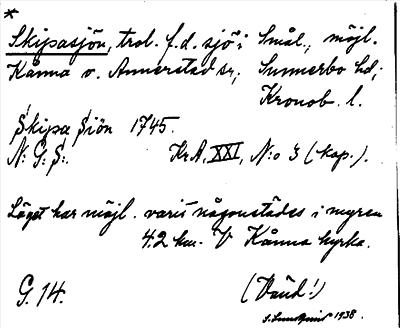 *
Skipasjön, trol. f.d. sjö i Smål., möjl.
Kånna o. Annerstad sr, Sunnerbo hd,
Kronob. l.
Skipa Siön 1745.
N: G: S:. KrA, XXI, N:o 3 (kop.).
Läget har möjl. varit någonstädes i myren
4.2 km. V Kånna kyrka.
G. 14. (Vänd!)
S. Lundquist 1938.